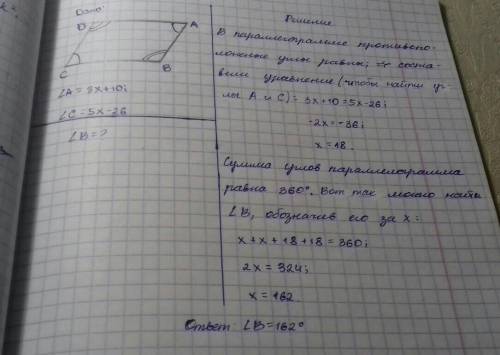 Дано:
D A
C B
∠A = 3x+10;
∠C = 5x-26
∠B = ?
Решение
В параллелограмме противопо-
ложные углы равны; => соста-
вим уравнение (чтобы найти уг-
лы A и C): 3x+10=5x-26;
-2x=-36;
x=18.
Сумма углов параллелограмма
равна 360°. Вот так можно найти
∠B, обозначив его за x:
x+x+18+18=360;
2x=324;
x=162
Ответ ∠B=162°